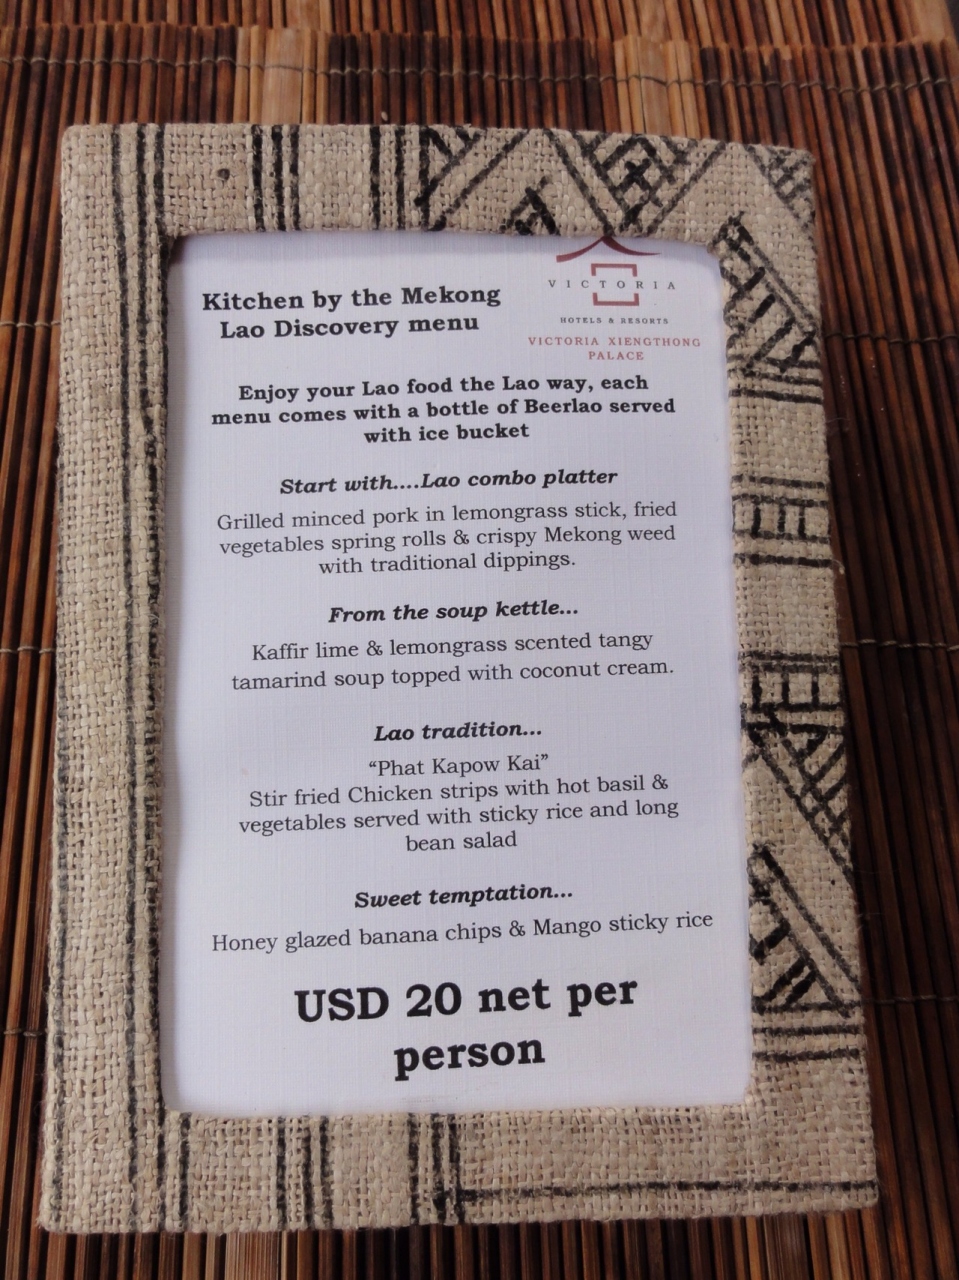 Kitchen by the Mekong
Lao Discovery menu
VICTORIA
HOTELS & RESORTS
VICTORIA XIENGTHONG
PALACE
Enjoy your Lao food the Lao way, each
menu comes with a bottle of Beerlao served
with ice bucket
Start with....Lao combo platter
Grilled minced pork in lemongrass stick, fried
vegetables spring rolls & crispy Mekong weed
with traditional dippings.
From the soup kettle...
Kaffir lime & lemongrass scented tangy
tamarind soup topped with coconut cream.
Lao tradition...
“Phat Kapow Kai”
Stir fried Chicken strips with hot basil &
vegetables served with sticky rice and long
bean salad
Sweet temptation...
Honey glazed banana chips & Mango sticky rice
USD 20 net per
person